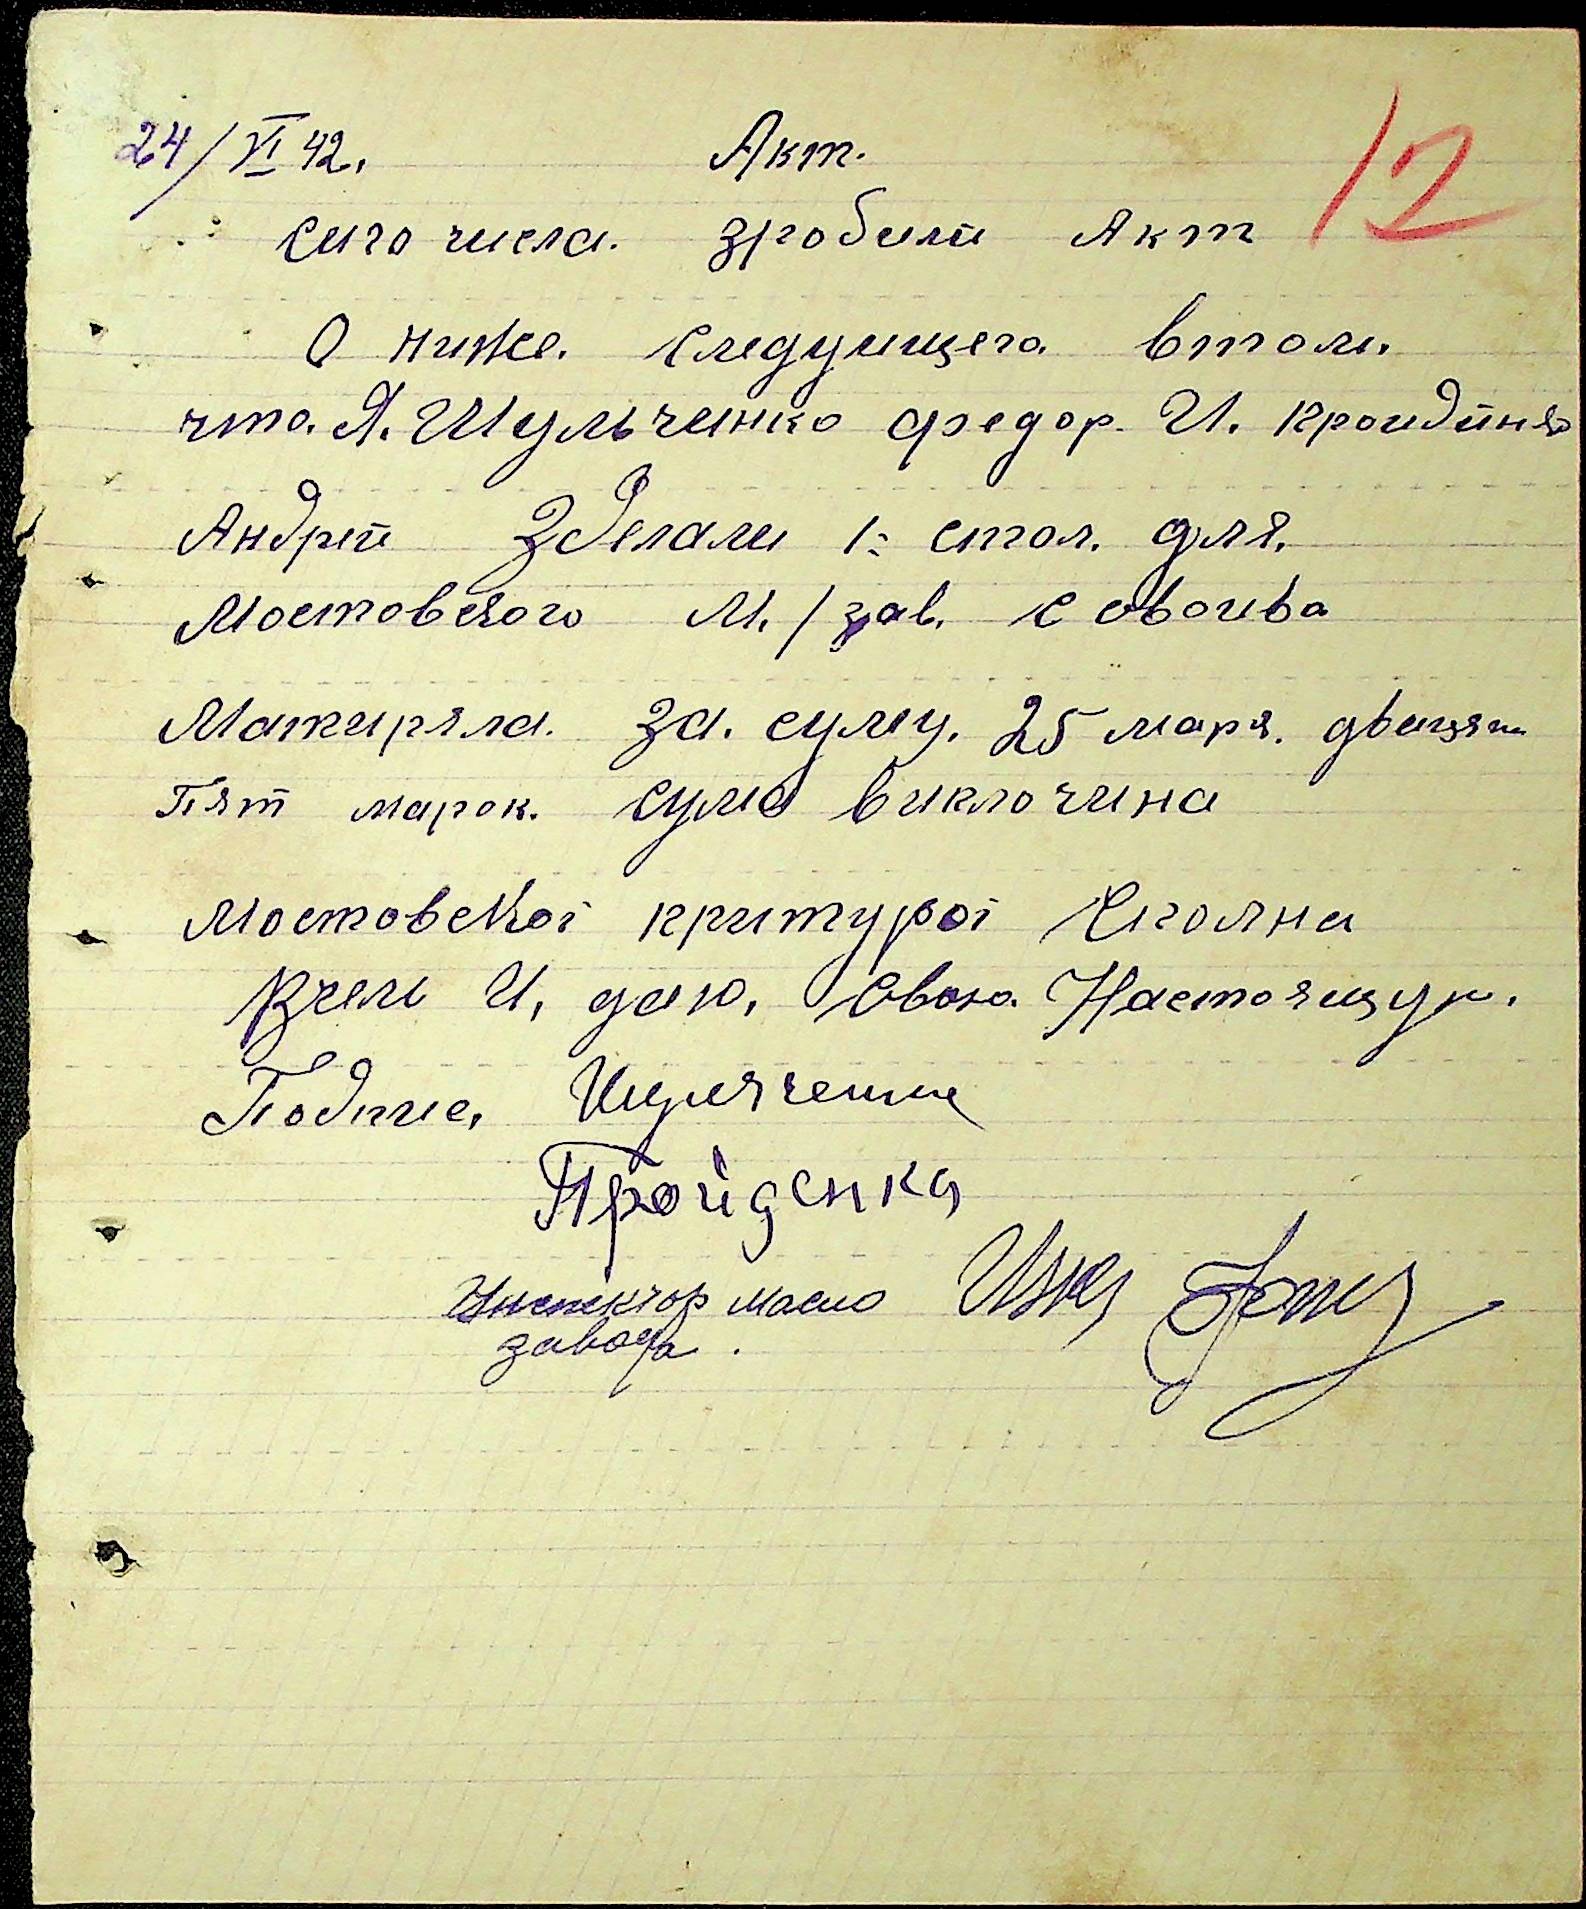 24/VI 42. Акт. 12
сиго числа. зробили Акт
О ниже. следуищего втом.
что. Я. Шульченко федор. И. проидине
Андрей Зделали 1: стол. для.
Мостовского М./зав. с овоива
Матиряла. За. суму. 25 маря. двацят
Пят марок. сума виключина
Мостовскоі критурої Сполна
И, даю, Свою. Настоящую.
Подпис, Шуляченко
Пройденка
Инспектор масло
завода.